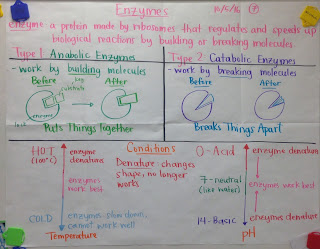 Enzymes 10/6/16 7
Enzyme: a protein made by ribosomes that regulates and speeds up
biological reactions by building or breaking molecules
Type 1 Anabolic Enzymes
- work by building molecules
Before
After
key
substrate
enzyme
lock
Puts Things Together
Type 2 Catabolic Enzymes
- work by breaking molecules
Before
After
Breaks Things Apart
Conditions
HOT
(100°C)
enzyme
denature
enzymes
work best
COLD
enzymes slow down,
cannot work well
Temperature
Denature - changes
shape, no longer
works
0-Acid
7-neutral
(like water)
14-Basic
enzyme denature
enzymes work best
enzyme denature
pH